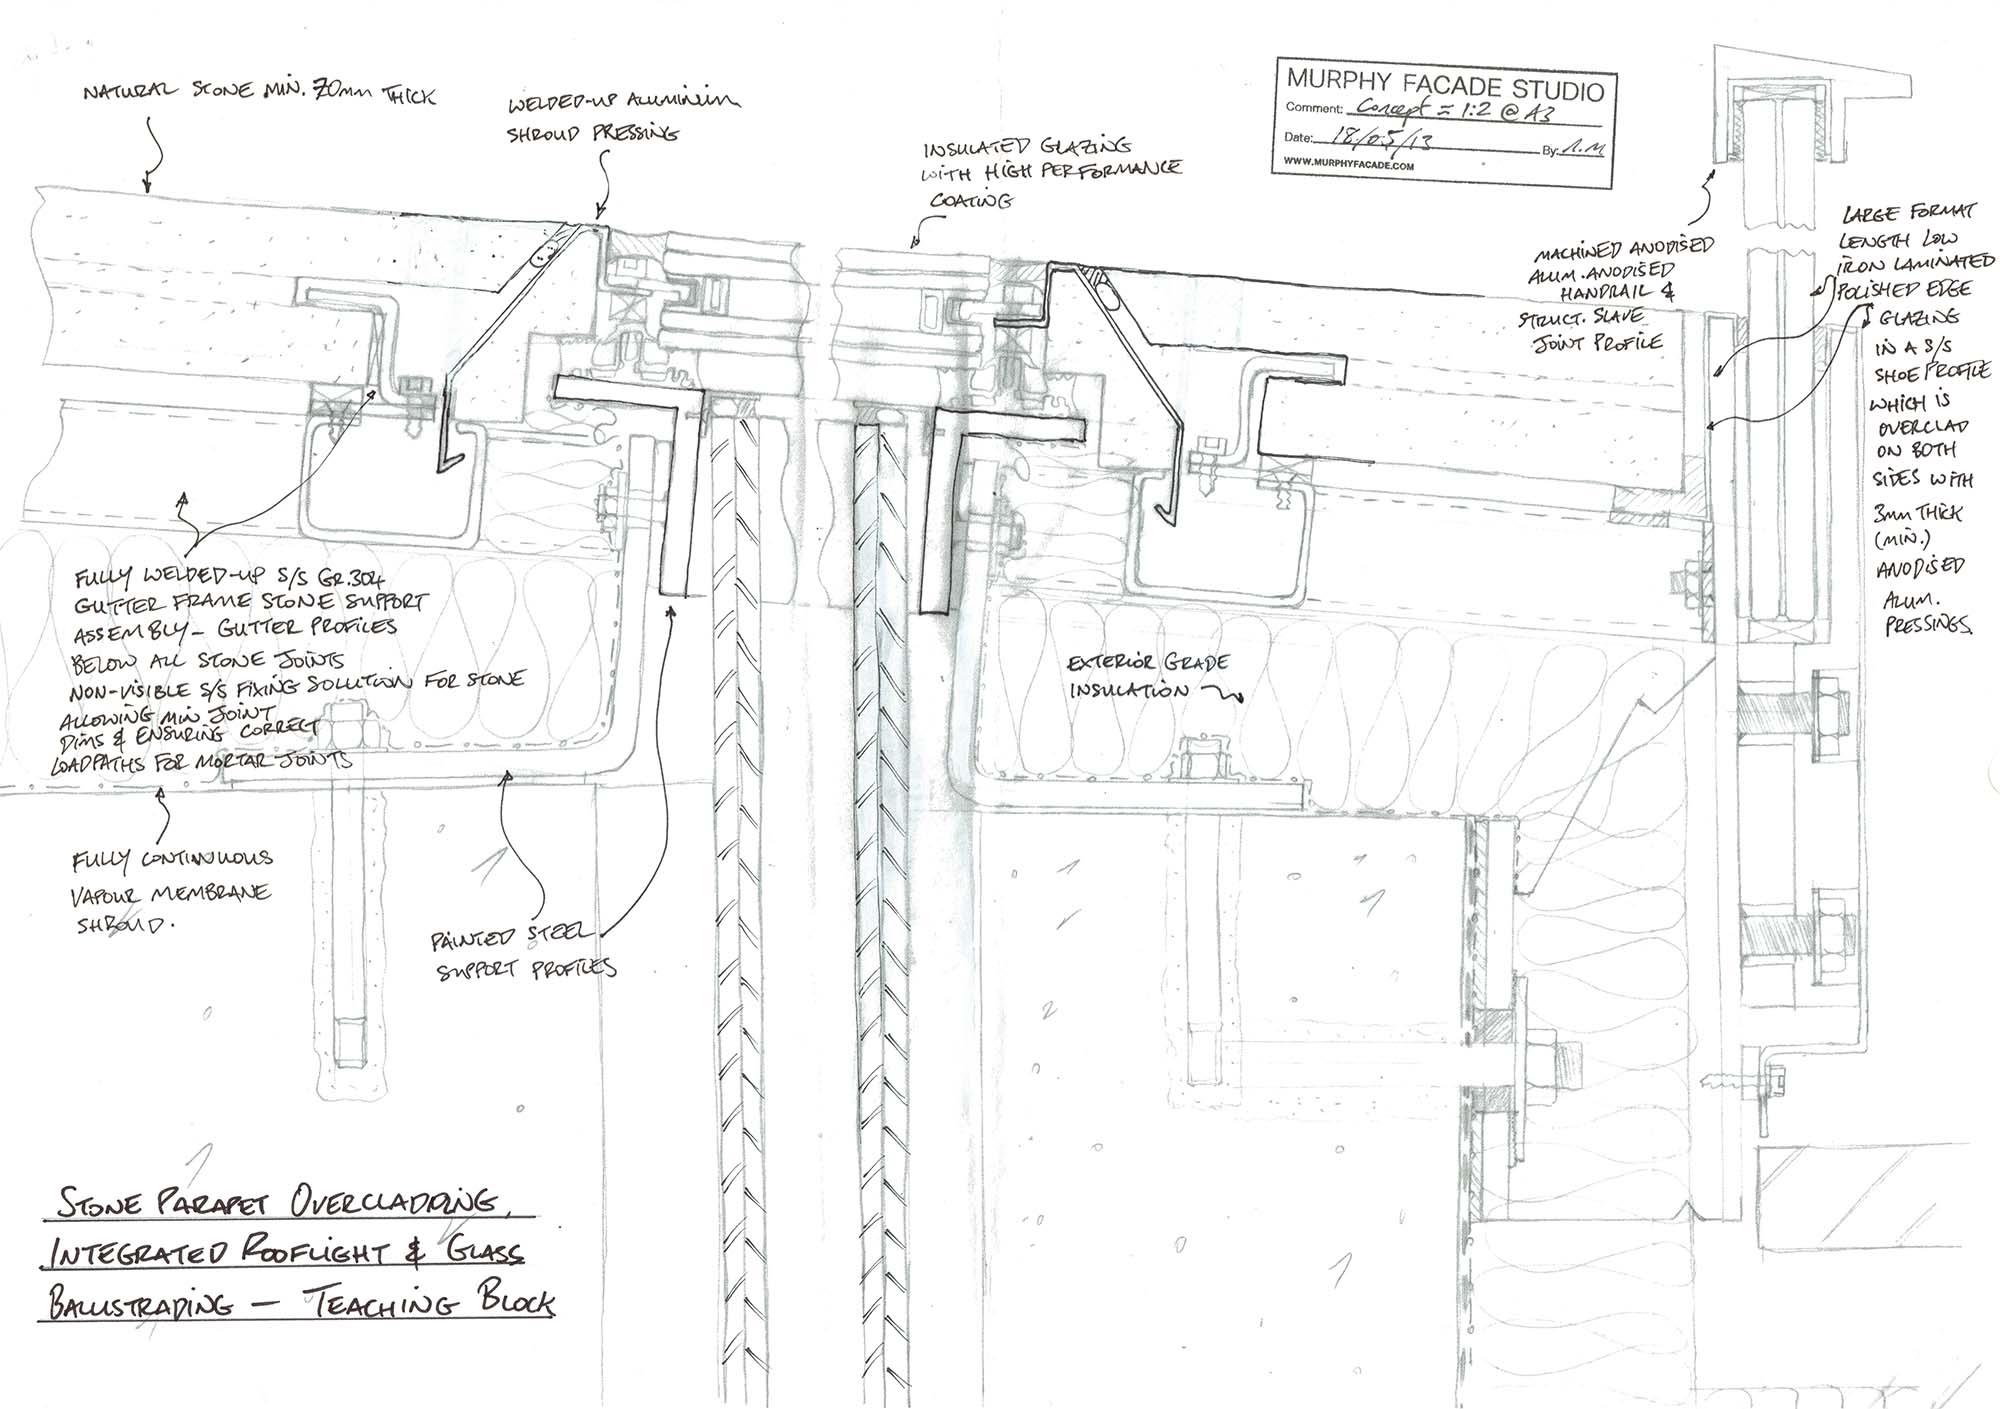 NATURAL STONE MIN. 70mm THICK
WELDED-UP ALUMINIUM
SHROUD PRESSING
INSULATED GLAZING
WITH HIGH PERFORMANCE
COATING
MURPHY FACADE STUDIO
Comment: Concept ≈ 1:2 @ A3
Date: 18/05/13 By: A.M
WWW.MURPHYFACADE.COM
MACHINED ANODISED
ALUM. ANODISED
HANDRAIL &
STRUCT. SLAVE
JOINT PROFILE
LARGE FORMAT
LENGTH LOW
IRON LAMINATED
POLISHED EDGE
GLAZING
IN A S/S
SHOE PROFILE
WHICH IS
OVERCLAD
ON BOTH
SIDES WITH
3mm THICK
(MIN.)
ANODISED
ALUM.
PRESSINGS.
FULLY WELDED-UP S/S GR.304
GUTTER FRAME STONE SUPPORT
ASSEMBLY - GUTTER PROFILES
BELOW ALL STONE JOINTS
NON-VISIBLE S/S FIXING SOLUTION FOR STONE
ALLOWING MIN JOINT
DIMS & ENSURING CORRECT
LOADPATHS FOR MORTAR JOINTS
EXTERIOR GRADE
INSULATION
FULLY CONTINUOUS
VAPOUR MEMBRANE
SHROUD.
PAINTED STEEL
SUPPORT PROFILES
STONE PARAPET OVERCLADDING,
INTEGRATED ROOFLIGHT & GLASS
BALUSTRADING — TEACHING BLOCK